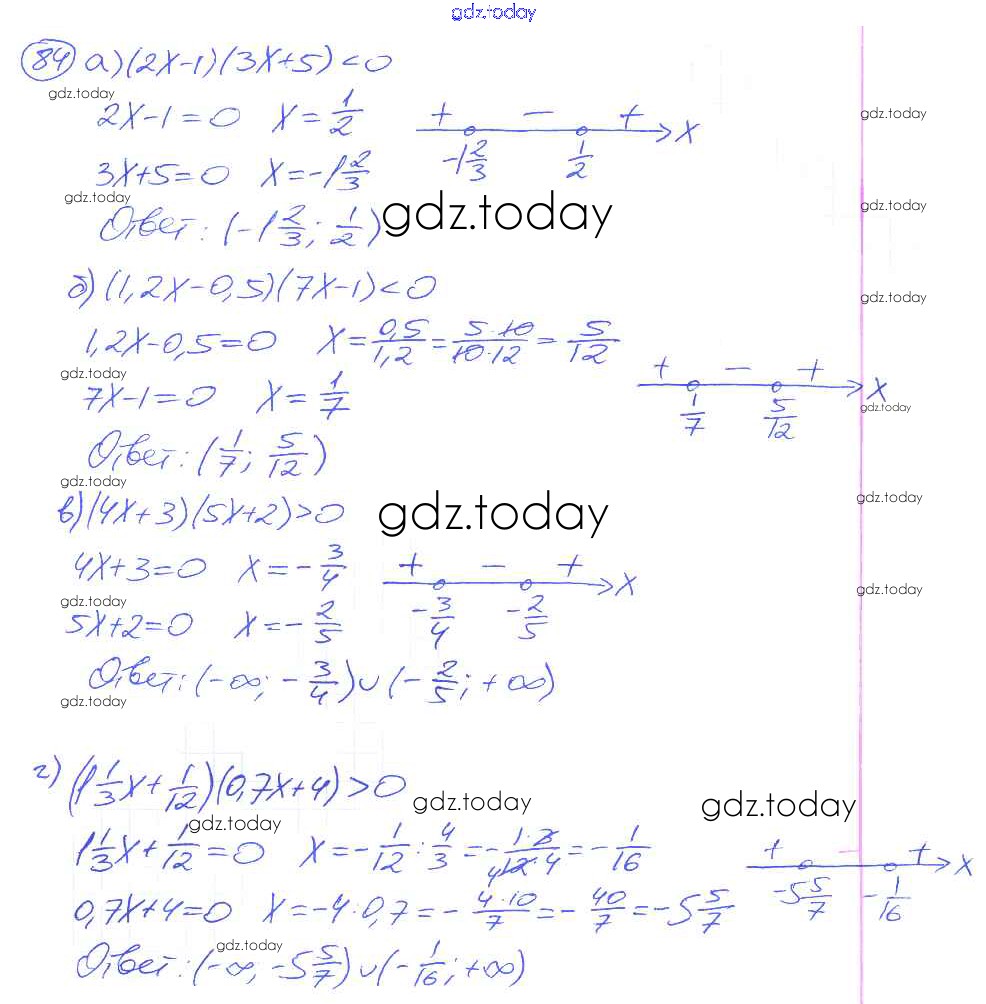 gdz.today
84 а) (2x-1)(3x+5)<0
gdz.today gdz.today
2x-1=0 x=1/2 + - + x
-1 2/3 1/2
3x+5=0 x=-1 2/3
gdz.today gdz.today
Ответ: (-1 2/3; 1/2) gdz.today
б) (1,2x-0,5)(7x-1)<0
gdz.today
1,2x-0,5=0 x=0,5/1,2=5·10/10·12=5/12
gdz.today + - + x
7x-1=0 x=1/7 1/7 5/12 gdz.today
Ответ: (1/7; 5/12)
gdz.today gdz.today
в) (4x+3)(5x+2)>0 gdz.today
4x+3=0 x=-3/4 + - + x
gdz.today -3/4 -2/5 gdz.today
5x+2=0 x=-2/5
Ответ: (-∞; -3/4)∪(-2/5; +∞)
gdz.today
г) (1 1/3x+1/12)(0,7x+4)>0
gdz.today gdz.today gdz.today
1 1/3x+1/12=0 x=-1/12:4/3=-1·3/12·4=-1/16 + - + x
4
0,7x+4=0 x=-4·0,7=-4·10/7=-40/7=-5 5/7 -5 5/7 -1/16
gdz.today
Ответ: (-∞; -5 5/7)∪(-1/16; +∞)